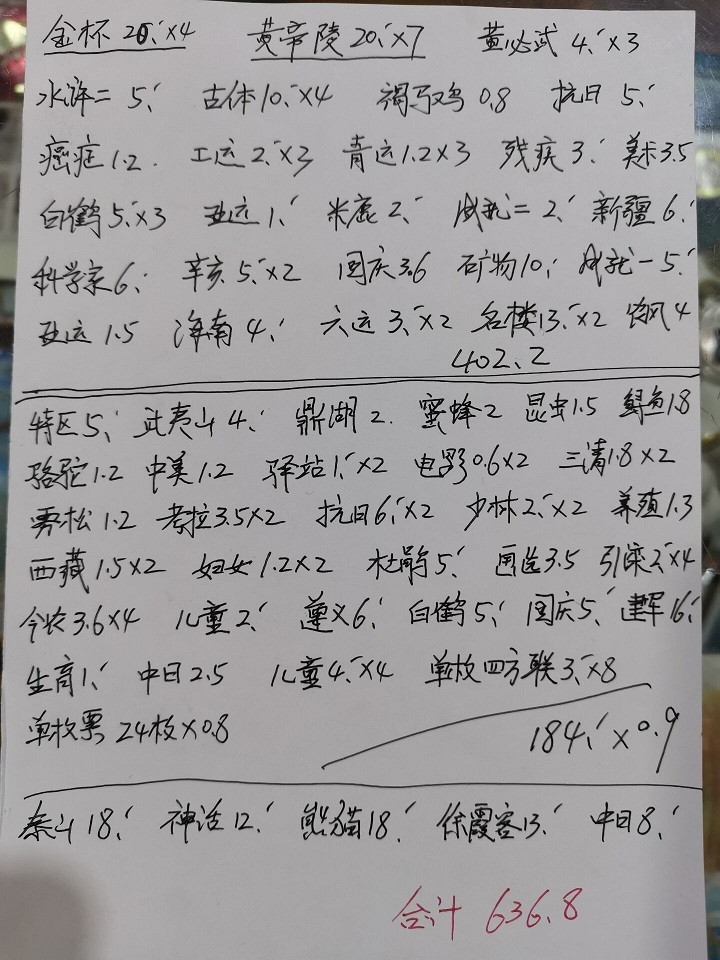 金杯 20.′×4 黄帝陵 20.′×7 黄必武 4.′×3
水浒二 5.′ 古体 10.′×4 褐马鸡 0.8 抗日 5.′
癌症 1.2 工运 2.′×3 青运 1.2×3 残疾 3.′ 美术 3.5
白鹤 5.′×3 亚运 1.′ 米鹿 2.′ 成就二 2.′ 新疆 6.′
科学家 6.′ 辛亥 5.′×2 国庆 3.6 矿物 10.′ 成就一 5.′
亚运 1.5 海南 4.′ 六运 3.′×2 名楼 13.′×2 饮风 4
402.2
特区 5.′ 武夷山 4.′ 鼎湖 2. 蜜蜂 2 昆虫 1.5 鲟鱼 1.8
骆驼 1.2 中美 1.2 驿站 1.′×2 电影 0.6×2 三清 1.8×2
雾松 1.2 考拉 3.5×2 抗日 6.′×2 少林 2.′×2 养殖 1.3
西藏 1.5×2 妇女 1.2×2 杜鹃 5.′ 国运 3.5 引滦 2.′×4
今农 3.6×4 儿童 2.′ 遵义 6.′ 白鹤 5.′ 国庆 5.′ 建军 16.′
生育 1.′ 中日 2.5 儿童 4.′×4 单枚四方联 3.′×8
单枚票 24枚×0.8 184.′×0.9
泰斗 18.′ 神话 12.′ 熊猫 18.′ 徐霞客 13.′ 中日 8.′
合计 636.8